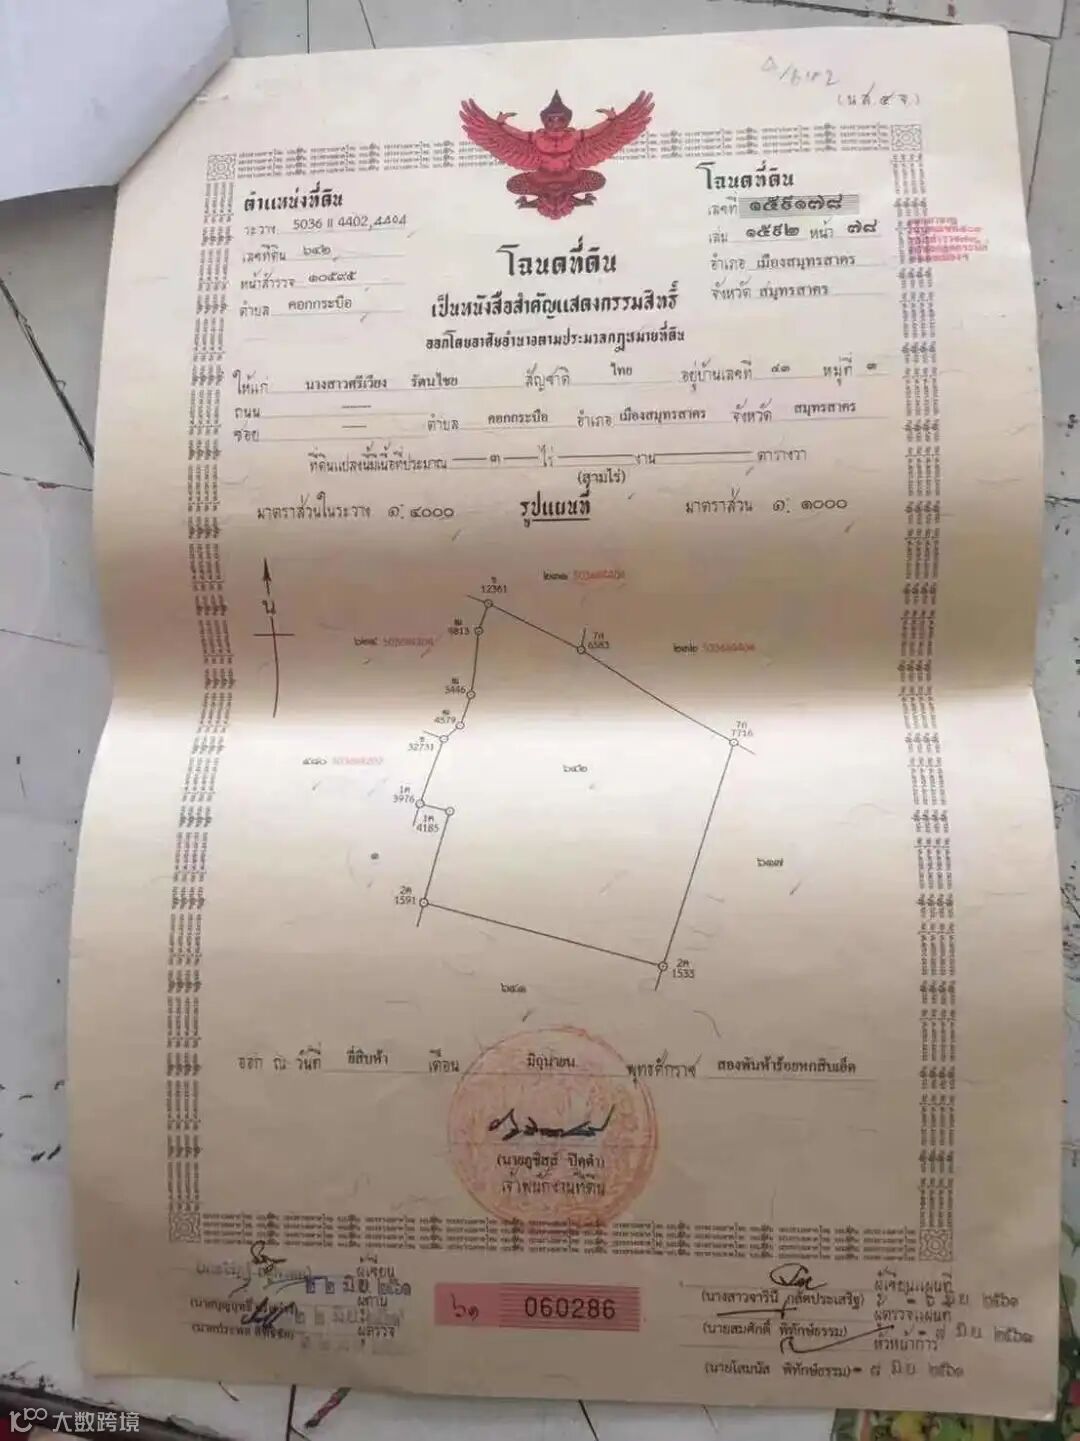 (น.ส.๔ จ.)
ตำแหน่งที่ดิน
ระวาง 5036 II 4402,4404
เลขที่ดิน ๖๔๒
หน้าสำรวจ ๑๐๕๙๕
ตำบล คอกกระบือ
โฉนดที่ดิน
เลขที่ ๑๕๙๑๗๘
เล่ม ๑๕๙๒ หน้า ๗๘
อำเภอ เมืองสมุทรสาคร
จังหวัด สมุทรสาคร
โฉนดที่ดิน
เป็นหนังสือสำคัญแสดงกรรมสิทธิ์
ออกโดยอาศัยอำนาจตามประมวลกฎหมายที่ดิน
ให้แก่ นางสาวศรีเวียง รัตนไชย สัญชาติ ไทย อยู่บ้านเลขที่ ๔๓ หมู่ที่ ๓
ถนน
ซอย ตำบล คอกกระบือ อำเภอ เมืองสมุทรสาคร จังหวัด สมุทรสาคร
ที่ดินแปลงนี้มีเนื้อที่ประมาณ ๓ ไร่ งาน ตารางวา
(สามไร่)
มาตราส่วนในระวาง ๑: ๔๐๐๐ รูปแผนที่ มาตราส่วน ๑: ๑๐๐๐
น
12361
9813
7ก
6583
3446
4579
32731
7ก
7716
๖๔๒
1ค
3976
1ค
4185
๑
๖๑๗
2ค
1591
2ค
1533
๖๔๑
ออก ณ วันที่ ยี่สิบห้า เดือน มิถุนายน พุทธศักราช สองพันห้าร้อยหกสิบเอ็ด
เจ้าพนักงานที่ดิน
ผู้เขียน
๒๒ มิ.ย. ๒๕๖๑
ผู้ทาน
ผู้ตรวจ
๖๑ 060286
ผู้เขียนแผนที่
(นางสาวจารินี กลัดประเสริฐ) - ๖ มิ.ย. ๒๕๖๑
ผู้ตรวจแผนที่
(นายสมศักดิ์ พิทักษ์ธรรม) ๗ มิ.ย. ๒๕๖๑
หัวหน้าการ
(นายโสมนัส พิทักษ์ธรรม) - ๘ มิ.ย. ๒๕๖๑
大数跨境